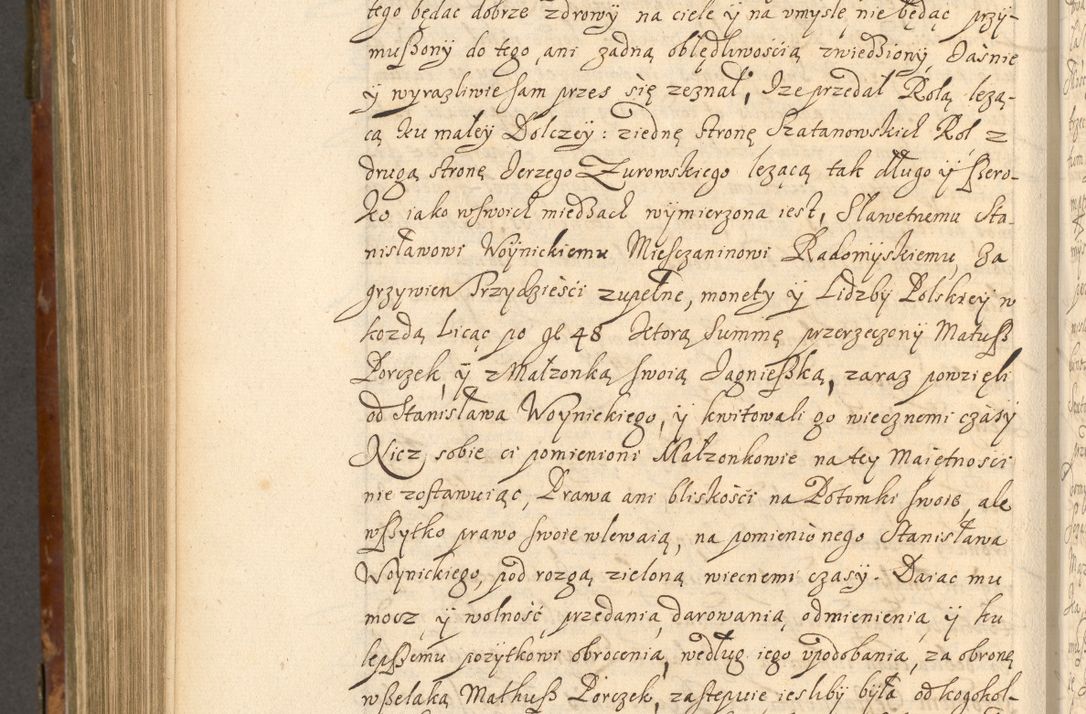 tego będąc dobrze zdrowy na ciele ÿ na vmyśle nie będąc przy-
mußony do tego ani zadną oblędliwośćią zwiedżiony, Jaśnie
ÿ wyrazliwie sam przes się zeznał, Ize przedał Rolą lezą-
cą ku małey Dolczey: ziednę stronę Szatanowskich Rol z
drugą stronę Jerzego Zurowskiego lezącą tak długo ÿ ßero-
ko iako wswoich miedzach wymierzona iest, Sławetnemu Sta-
nisławowi Woÿnickiemu Miesczaninowi Radomyskiemu, Za
grzywien Trzydzieśći zupełne, monety ÿ Lidzby Polskiey w
kozdą licąc po gl 48 Ktorą Summę przerzeczony Matuß
Porczek, ÿ z Małzonką swoią Jagnießką, zaraz powzięli
od Stanisława Woynickiego, ÿ kwitowali go wiecznemi czasÿ
Nicz sobie ci pomienioni Małzonkowie na tey Maiętnosci
nie zostawuiąc, Prawa ani bliskośći na Potomki swoie, ale
wßytko prawo swoie wlewaią, na pomienionego Stanisława
Woynickiego, pod rozgą zieloną wiecnemi czasy. Daiąc mu
mocz, ÿ wolność przedania, darowania, odmienienia, ÿ ku
lepßemu pozytkowi obrocenia, według iego vpodobania, za obronę
wßelaką Mathuß Porczek, zastepuie iesliby była od kogokol-